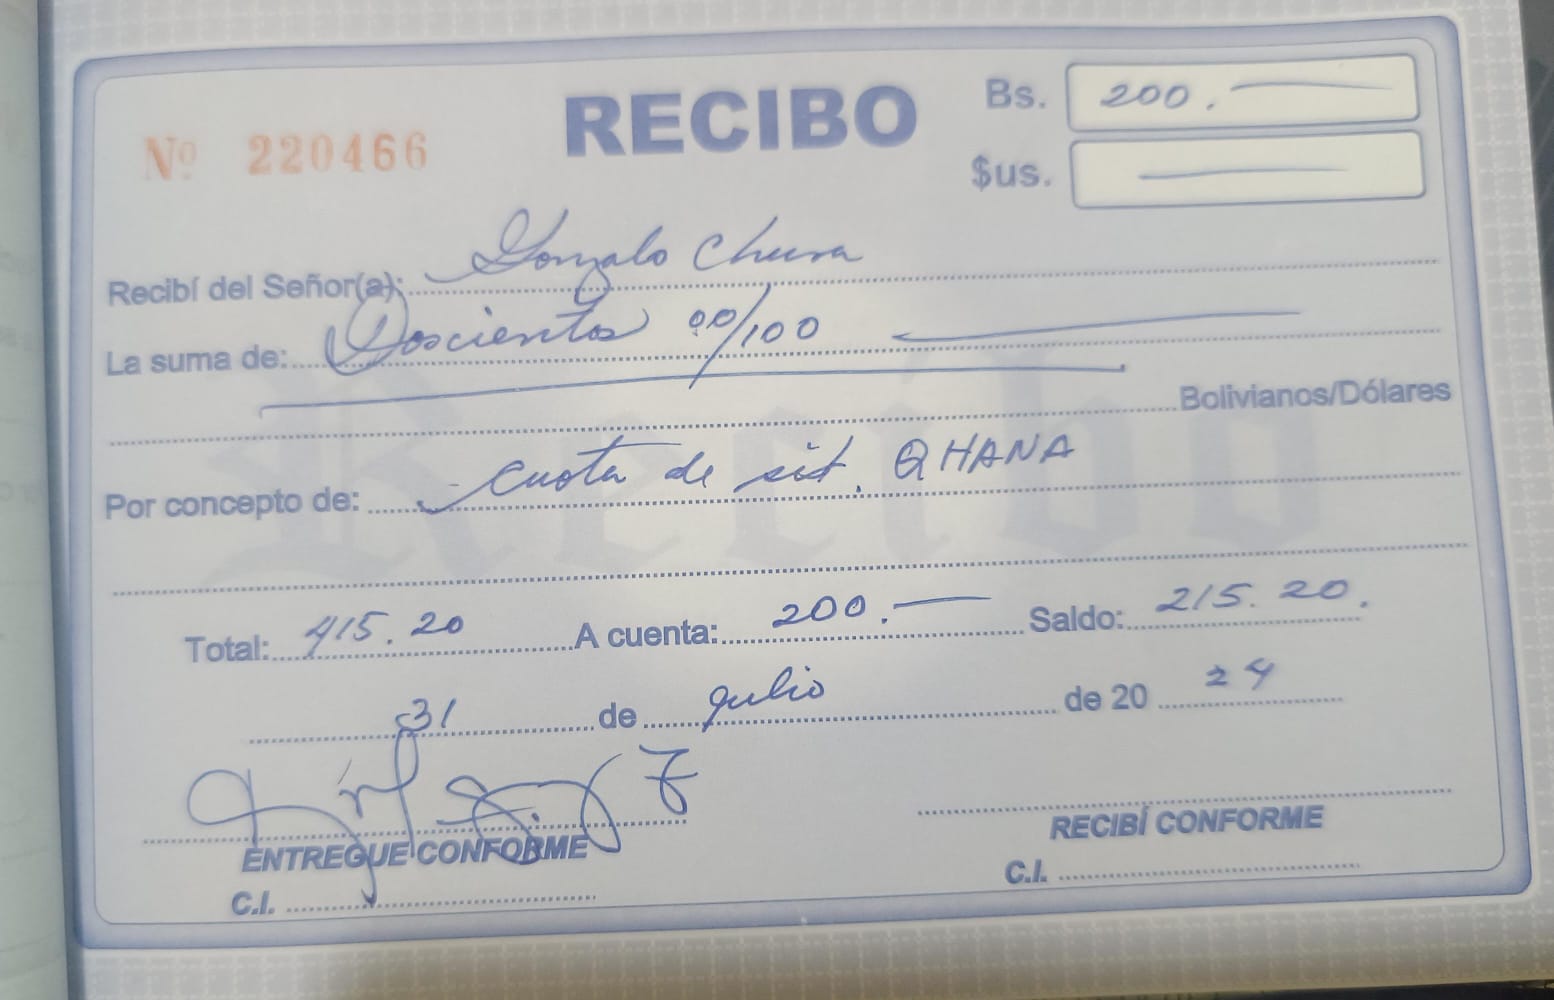 RECIBO
Bs. 200.
Nº 220466
$us.
Recibí del Señor(a): Gonzalo Chura
La suma de: Doscientos 00/100
Bolivianos/Dólares
Por concepto de: cuota de sit. QHANA
Total: 415.20 A cuenta: 200. Saldo: 215.20.
31 de julio de 20 24
ENTREGUE CONFORME
RECIBÍ CONFORME
C.I.
C.I.
Recibo